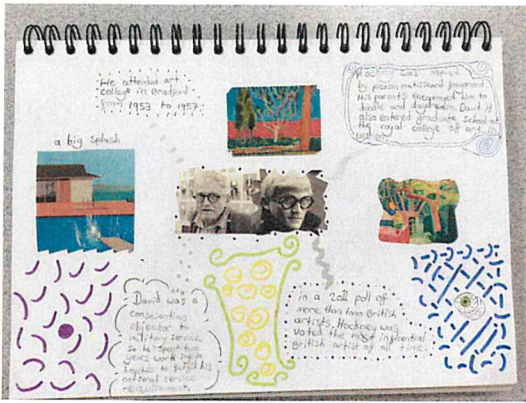 He attended art
college in Bradford
from 1953 to 1957.
Hockney was inspired
by picasso, matisse and fragonard.
His parents encouraged him to
doodle and daydream. David H
also entered graduate school at
the royal college of art
a big splash
David was a
conscientious
objector to
military service
so he spent two
years working in
hospitals to fulfil his
national service
requirement.
in a 2011 poll of
more than 1000 British
artists, Hockney was
voted the most influential
British artist of all time.